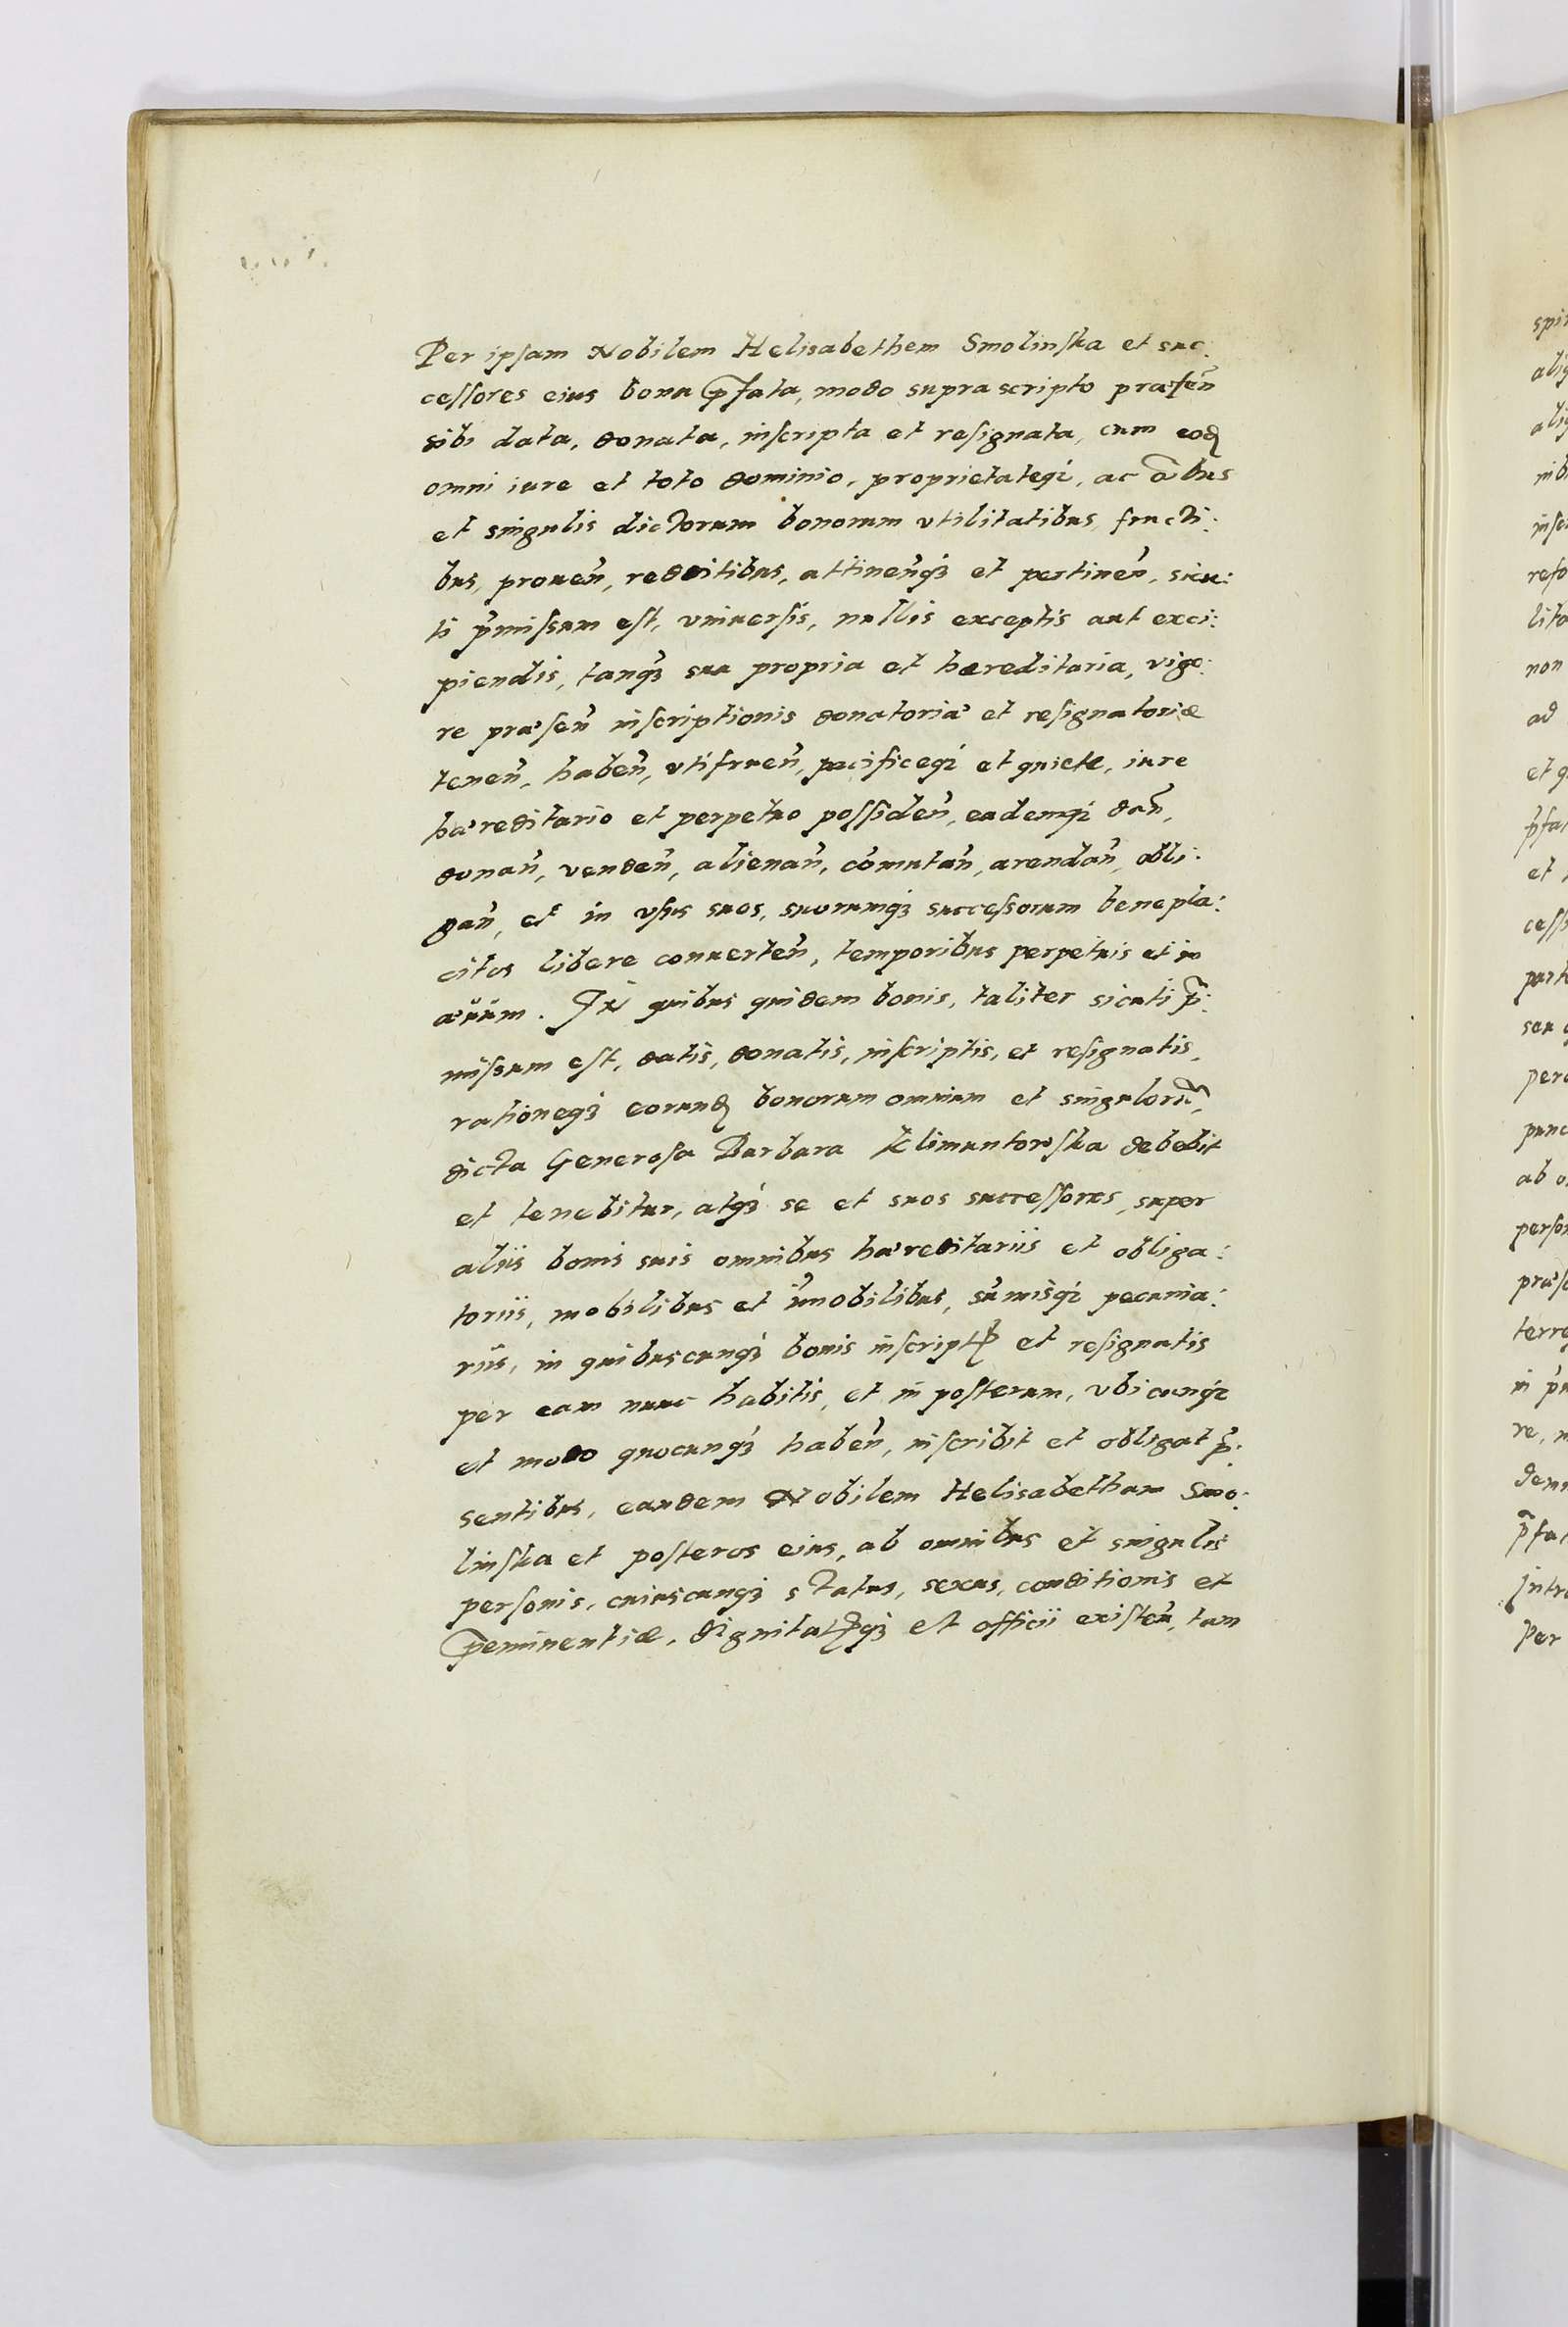 Per ipsam Nobilem Helisabethem Smolinska et suc:
cessores eius bona p̃fata, modo supra scripto præsen̄
sibi data, donata, inscripta et resignata, cum eoḍ
omni iure et toto dominio, proprietateq₃, ac oībus
et singulis dictorum bonorum vtilitatibus, fructi:
bus, prouen̄, redditibus, attinen̄q₃ et pertinen̄, sicu:
ti p̄missum est, vniuersis, nullis exceptis aut exci:
piendis, tanq₃ sua propria et hæreditaria, vigo:
re præsen̄ inscriptionis donatoriæ et resignatoriæ
tenen̄, haben̄, vtifruen̄, pacificeq₃ et quiete, iure
hæreditario et perpetuo possiden̄, eademq₃ dan̄,
donan̄, venden̄, alienan̄, com̄utan̄, arendan̄, obli:
gan̄, et in vsus suos, suorumq₃ successorum benepla:
citos libere conuerten̄, temporibus perpetuis et in
æuum. In quibus quidem bonis, taliter sicuti p̄:
missum est, datis, donatis, inscriptis, et resignatis,
rationeq₃ eorunḍ bonorum omnium et singulorū,
dicta Generosa Barbara Klimuntowska debebit
et tenebitur, atq₃ se et suos successores, super
aliis bonis suis omnibus hæreditariis et obliga:
toriis, mobilibus et im̄obilibus, sum̄isq₃ pecunia:
riis, in quibuscunq₃ bonis inscriptꝭ et resignatis
per eam nunc habitis, et in posterum, vbicunq₃
et modo quocunq₃ haben̄, inscribit et obligat p̄:
sentibus, eandem Nobilem Helisabetham Smo:
linska et posteros eius, ab omnibus et singulis
personis, cuiuscunq₃ status, sexus, conditionis et
p̄eminentiæ, dignitatꝭq₃ et officii existen̄, tam